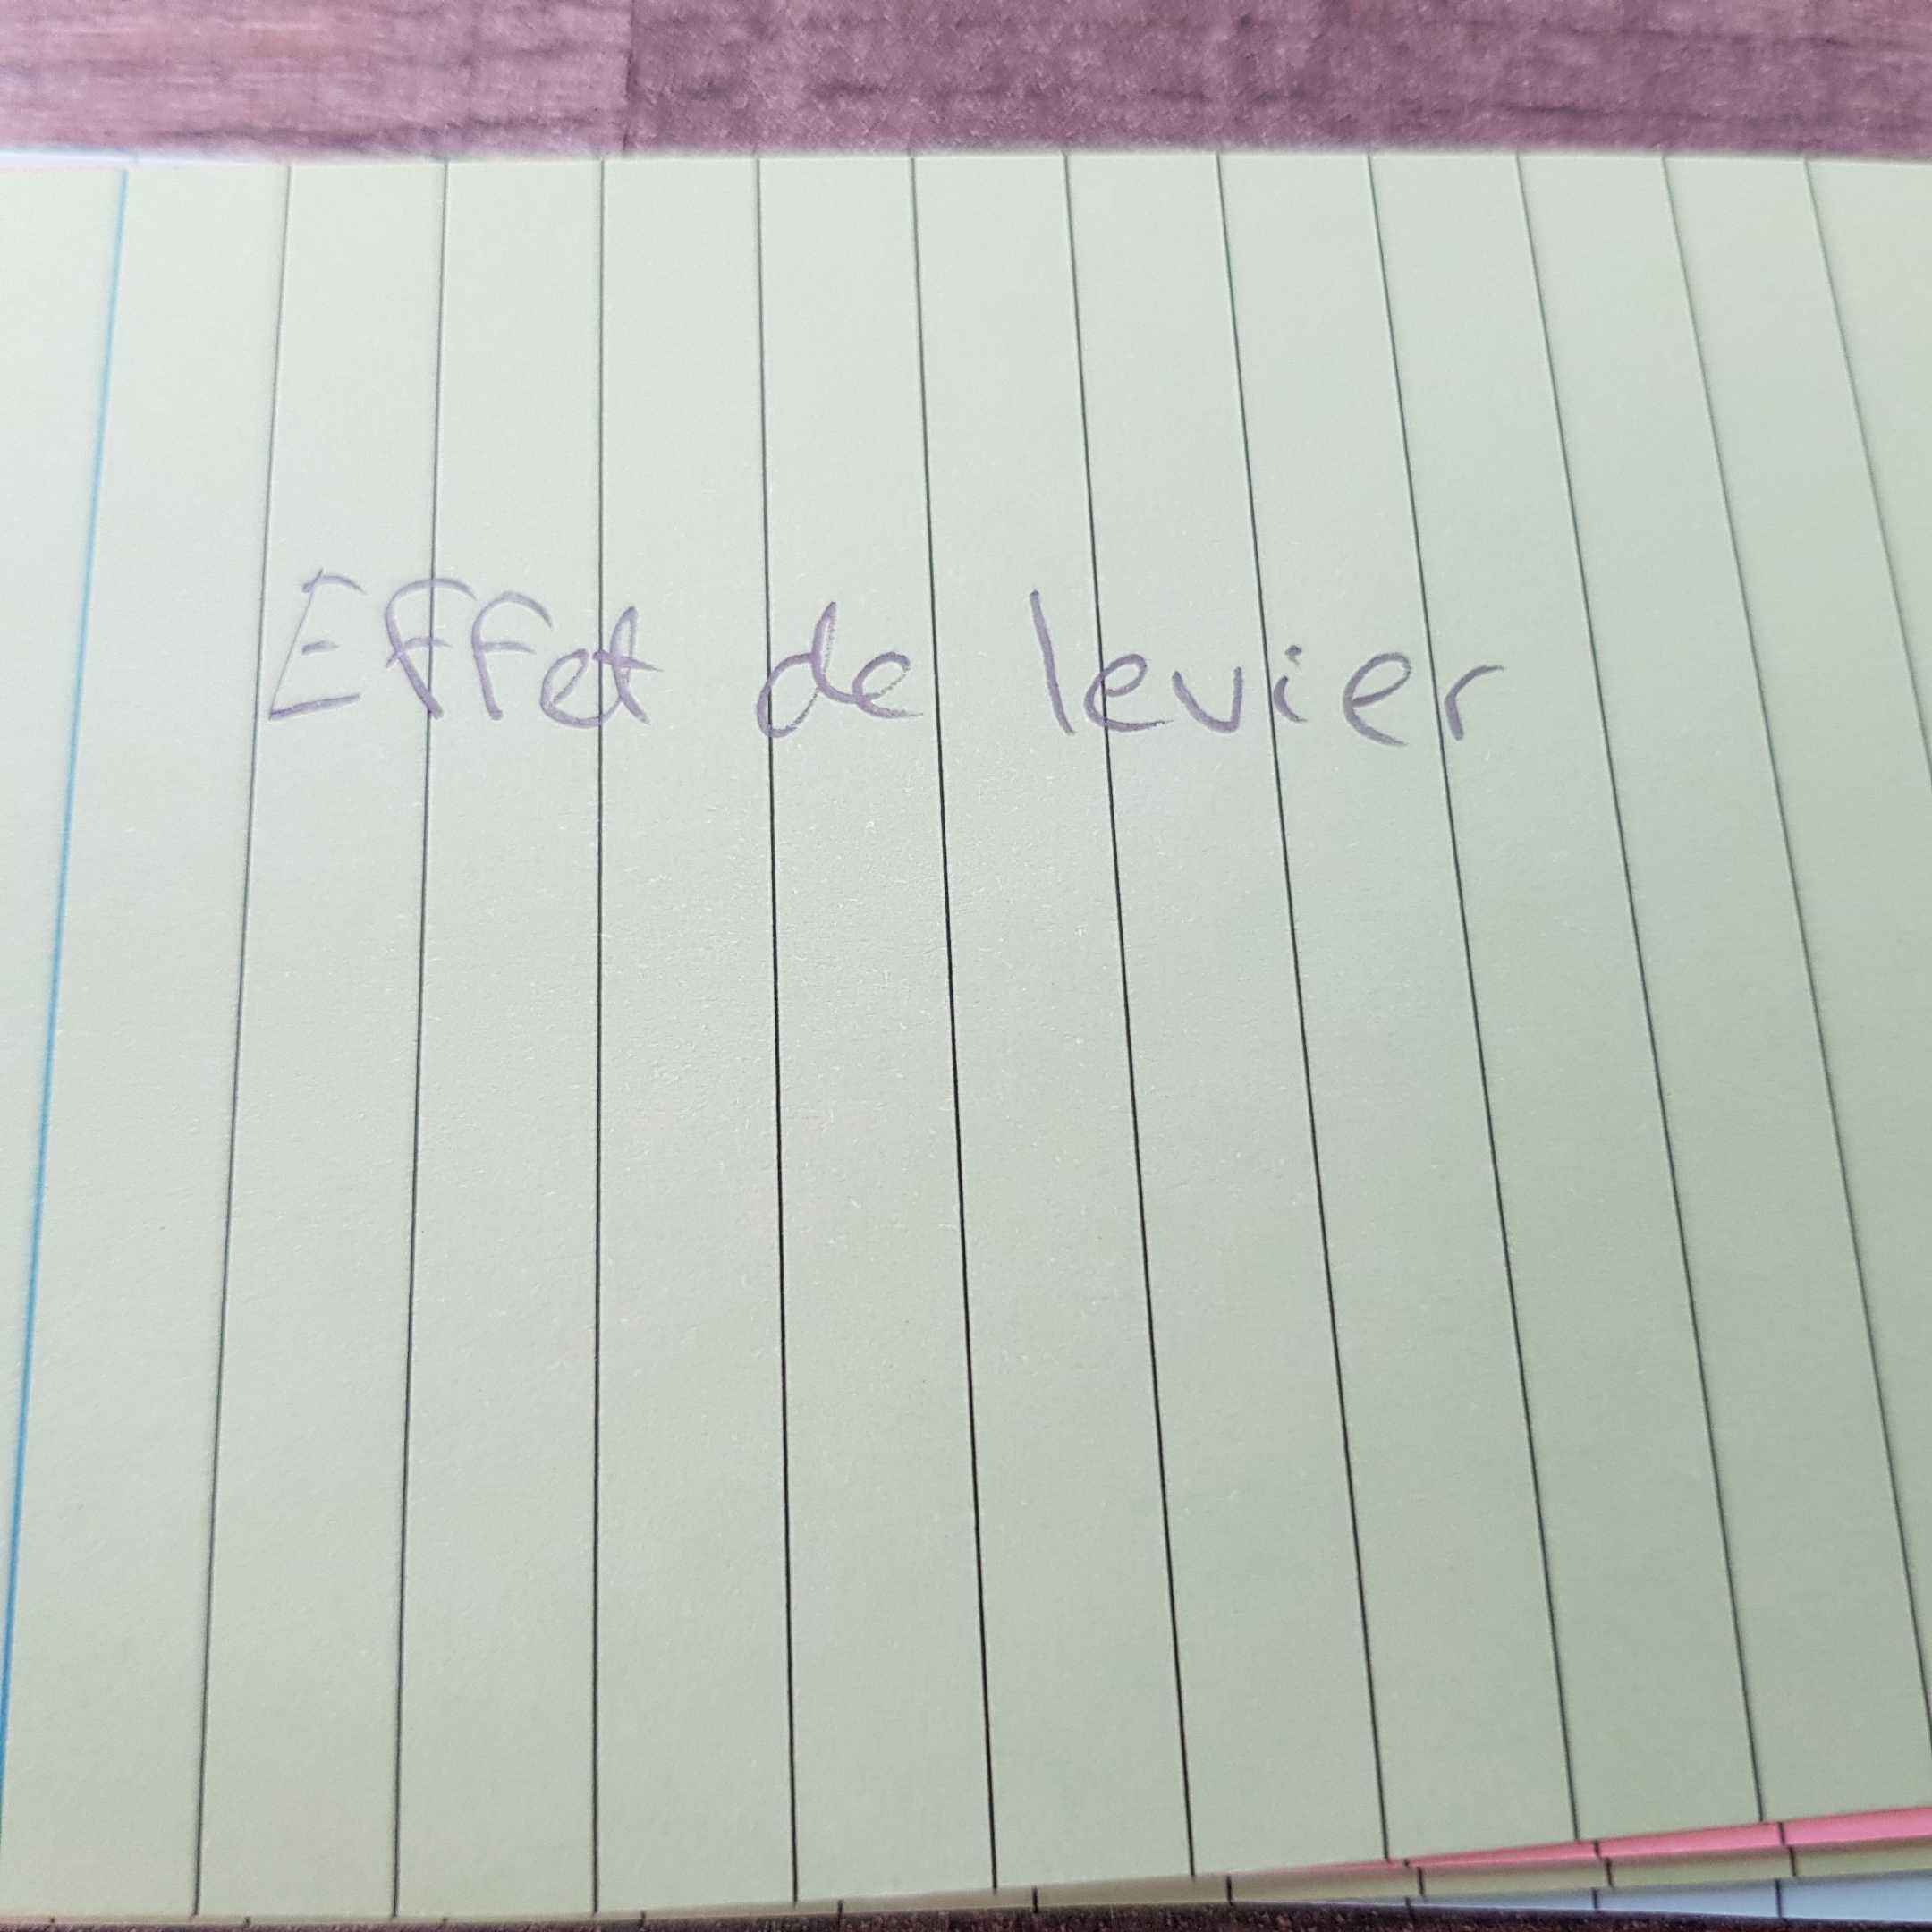 Effet de levier